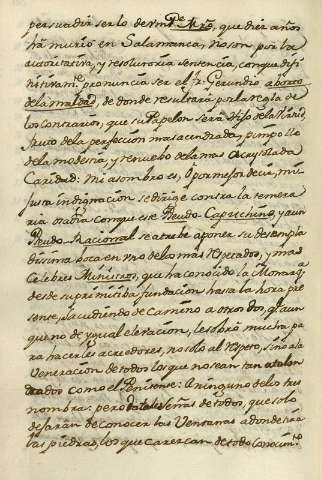 persuadir ser lo de Vm. Pe. Mro, que diez años
ha murio en Salamanca, no son por la
autoritativa, y resolutoria sentencia, con que difi
nitivamte. pronuncia ser el Fr. Gerundio aborto
de la maldad, de donde resultarà por la regla de
los contrarios, que su Papelon serà Hijo de la Virtud,
fruto de la perfeccion mas acendrada, pimpollo
de la modestia, y renuebo de la mas acrysolada
Caridad: Mi asombro es, ò por mejor decir, mi
justa indignacion se dirige contra la temera
ria osadia con que ese Pseudo-Capuchino, y aun
Pseudo-Racional se atrebe à poner su destempla
dissima boca en uno de los mas elevados, y mas
Celebres Ministros, que ha conocido la Monarqa.
desde su primitiba fundacion hasta la hora pre
sente, sacudiendo de camino à otros dos, qe. aun
que no de ygual elevacion, les sobrò mucha pa
ra hacerles acreedores, no solo al respeto, sino a la
Veneracion de todos los que no sean tan atolon
drados como el Penitente: A ninguno de los tres
nombra: pero da tales señas de todos, que solo
dejaràn de conocer las Ventanas adonde tira
las piedras, los que carezcan de todo conocimto.